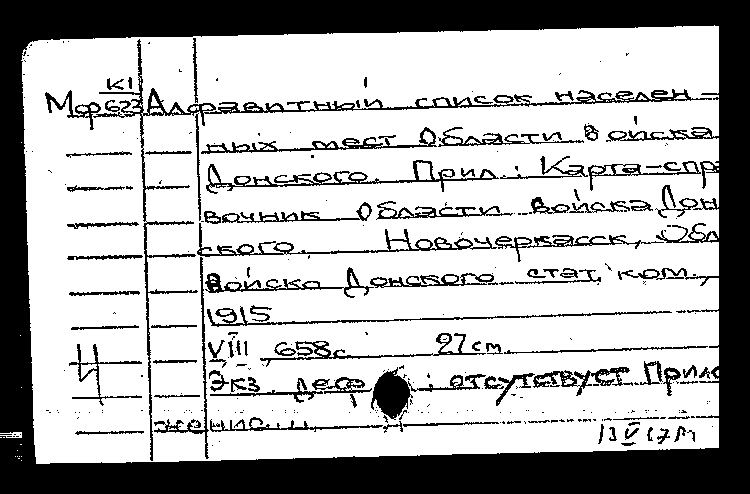 К1
Мф 623 Алфавитный список населен-
ных мест Области Войска
Донского. Прил.: Карта-спра
вочник Области Войска Дон
ского. Новочеркасск, Обл
Войска Донского стат. ком.,
1915
VIII, 658с. 27см.
Экз. деф : отсутствует Прило
жение...